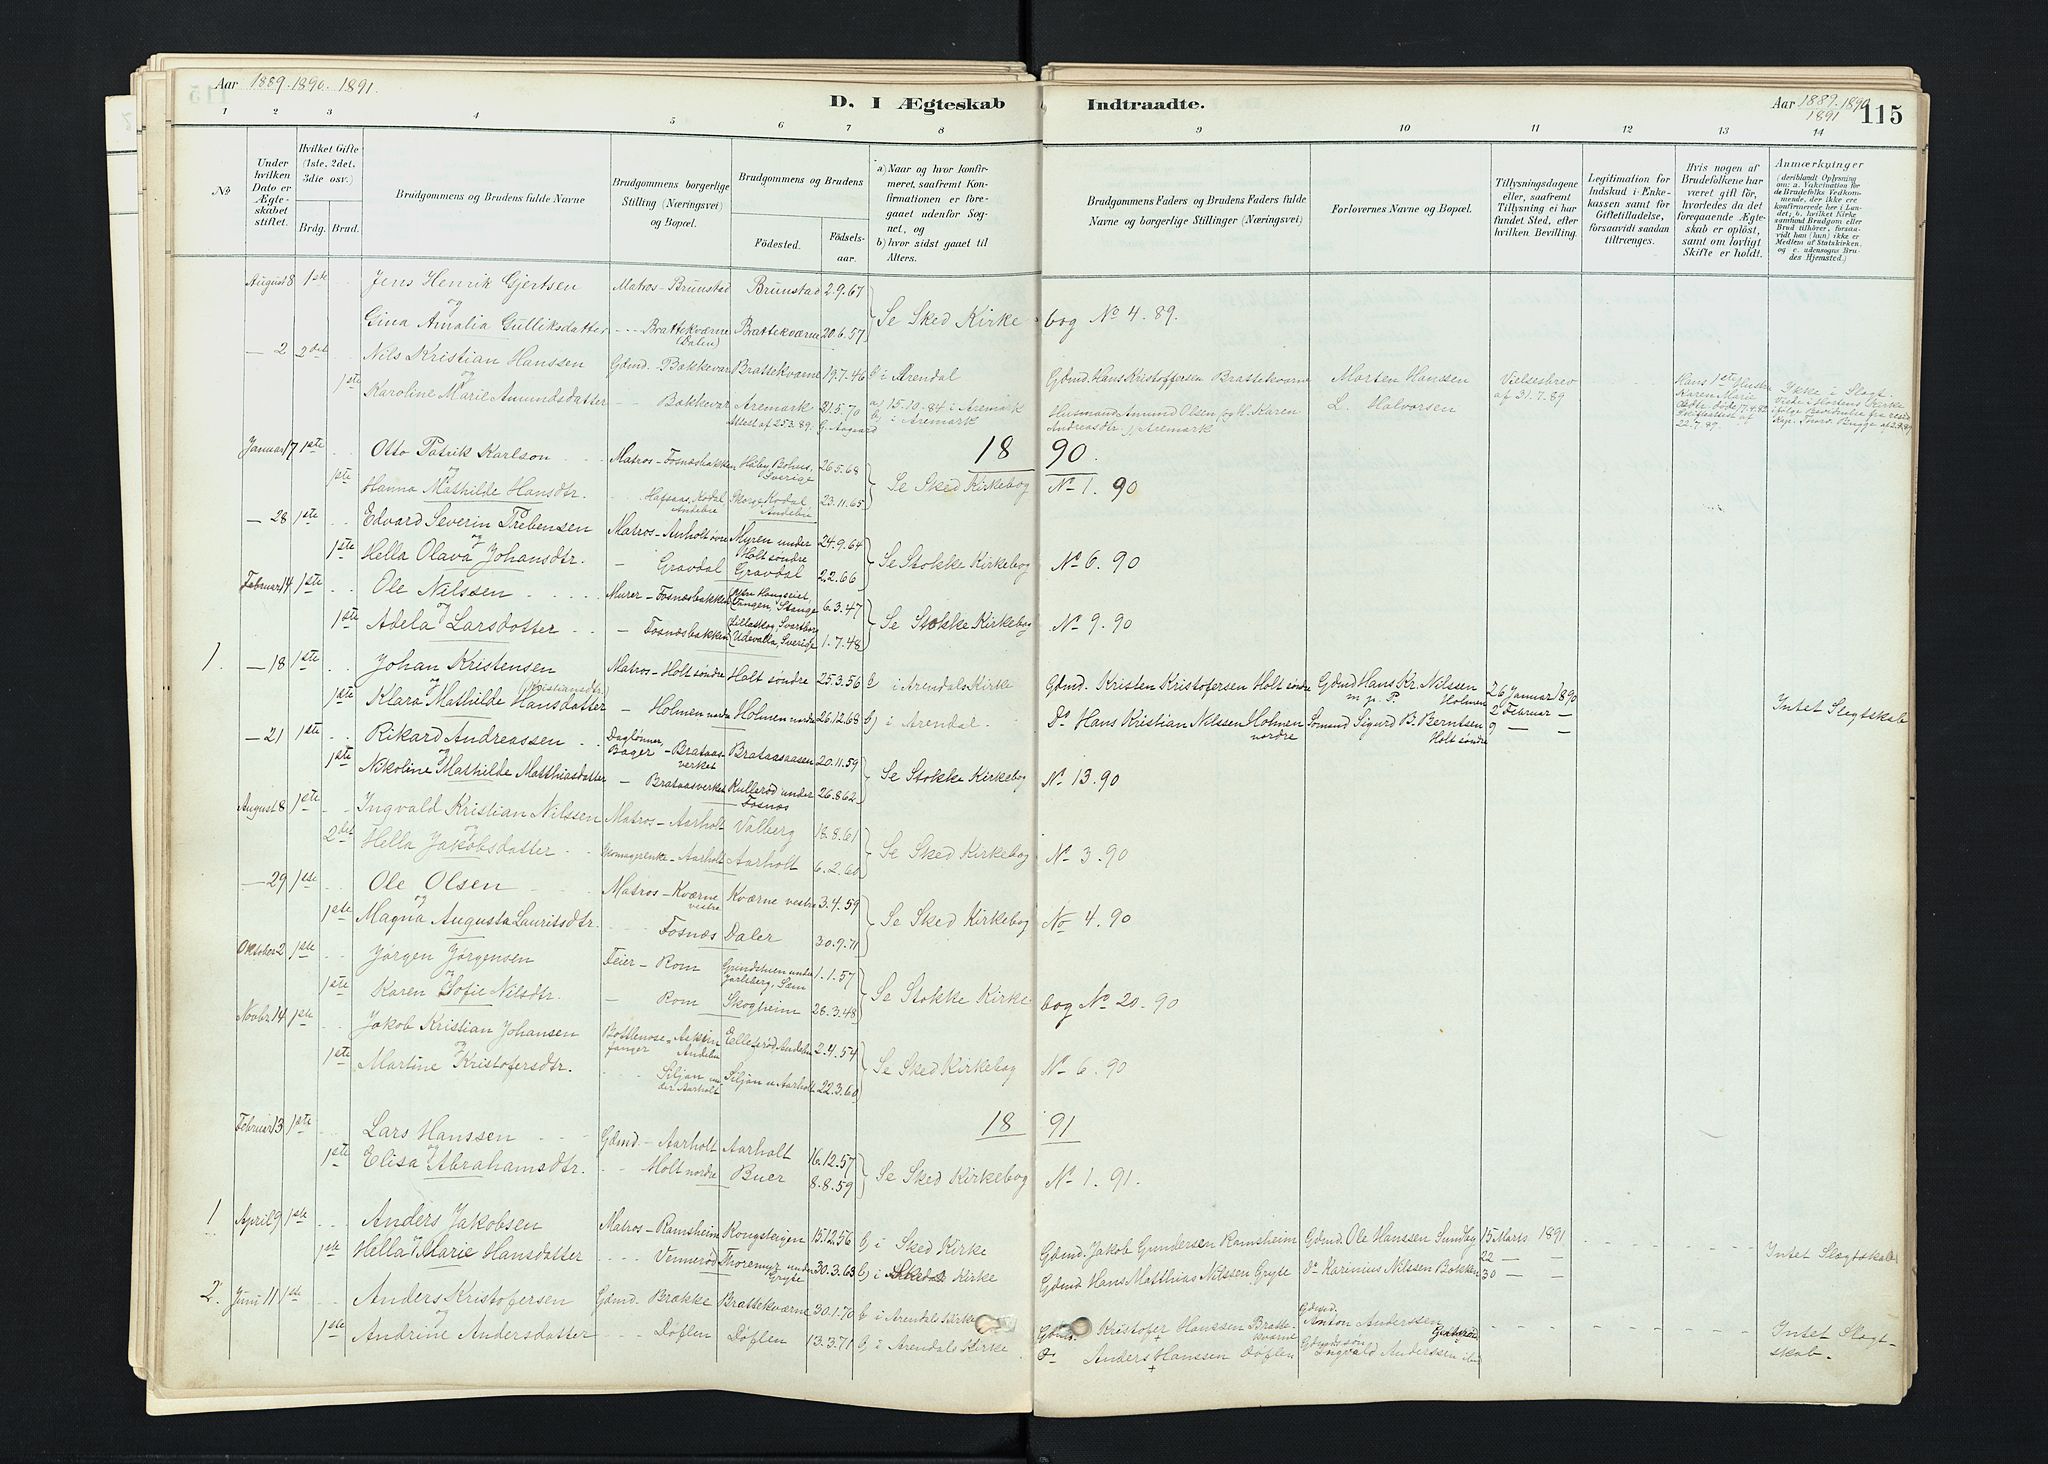 Aar 1889. 1890. 1891.
D. I Ægteskab Indtraadte.
Aar 1889. 1890 1891
115
1 2 3 4 5 6 7 8 9 10 11 12 13 14
No
Under hvilken Dato er Ægteskabet stiftet.
Hvilket Gifte (1ste, 2det, 3die osv.)
Brdg. Brud.
Brudgommens og Brudens fulde Navne
Brudgommens borgerlige Stilling (Næringsvei) og Bopæl.
Brudgommens og Brudens
Fødested.
Fødselsaar.
a) Naar og hvor konfirmeret, saafremt Konfirmationen er foregaaet udenfor Sognet, og
b) hvor sidst gaaet til Alters.
Brudgommens Faders og Brudens Faders fulde Navne og borgerlige Stillinger (Næringsvei)
Forlovernes Navne og Bopæl.
Tillysningsdagene eller, saafremt Tillysning ei har fundet Sted, efter hvilken Bevilling.
Legitimation for Indskud i Enkekassen samt for Giftetilladelse, forsaavidt saadan tiltrænges.
Hvis nogen af Brudefolkene har været gift før, hvorledes da det foregaaende Ægteskab er opløst, samt om lovligt Skifte er holdt.
Anmærkninger (deriblandt Oplysning om: a. Vakcination for de Brudefolks Vedkommende, der ikke ere konfirmerede her i Landet; b. hvilket Kirkesamfund Brudgom eller Brud tilhører, forsaavidt han (hun) ikke er Medlem af Statskirken, og c. udensogns Brudes Hjemsted.)
August 8 1ste Jens Henrik Gjertsen Matros - Brunstad Brunstad 2.9.67
og
Gina Amalia Gulliksdatter Brattekværne (Dalen) Brattekværne 20.6.57 Se Sked Kirkebog No 4. 89.
— 2 2det Nils Kristian Hanssen Gdmd. Bakkevar Brattekværne 19.7.46 b i Arendal Gdmd. Hans Kristoffersen Brattekværne Morten Hanssen Vielsesbrev af 31.7.89
og
1ste Karoline Marie Amundsdatter Bakkevar Aremark 21.5.70 a) 15.10.84 i Aremark b. i Aremark Husmand Amund Olsen og Karen Andreasdtr. Aremark L. Halvorsen
Hans 1ste Hustru Karen Marie døde 17.4.82 22.7.89
Ikke i Slegt. Viede i Hortens Kirke
18 90.
Januar 17 1ste Otto Patrik Karlson Matros - Fosnæsbakken Haby, Bohus, Sverige 26.5.68
og
1ste Hanna Mathilde Hansdtr. Hafsaas, Kodal Andebu Skorge Kodal Andebu 23.11.65 Se Sked Kirkebog No 1. 90
— 28 1ste Edvard Severin Prebensen Matros - Anholt øvre Myren under Holt søndre 24.9.64
og
1ste Hella Olava Johansdtr. — Gravdal Gravdal 2.2.66 Se Stokke Kirkebog No 6. 90
Februar 14 1ste Ole Nilssen Murer - Fosnæsbakken Tangen, Stange 6.3.47
og
1ste Adela Larsdotter — Fosnæsbakken Lillaskog, Svartborg Udevalla, Sverige 1.7.48 Se Stokke Kirkebog No 9. 90
1. — 18 1ste Johan Kristensen Matros - Holt søndre Holt søndre 25.3.56 b i Arendals Kirke Gdmd. Kristen Kristofersen Holt søndre Gdmd Hans Kr. Nilssen m. p. P. Holmen 26 Januar 1890
og (Kristiansdtr.)
1ste Klara Mathilde Hansdatter — Holmen nordre Holmen nordre 26.12.68 b) i Arendal. Do Hans Kristian Nilssen Holmen nordre Sømand Sigurd B. Berntsen Holt søndre 2 Februar — 9 — — Intet Slegtskab
— 21 1ste Rikard Andreassen Daglønner, Bager - Brataasverket Brataasaasen 20.11.59
og
1ste Nikoline Mathilde Matthiasdatter — Brataasverket Kullerød under Fosnæs 26.8.62 Se Stokke Kirkebog No 13. 90
August 8 1ste Ingvald Kristian Nilssen Matros - Aarholt Valberg 18.8.61
og
2det Hella Jakobsdatter Skomagerenke - Aarholt Aarholt 6.2.60 Se Sked Kirkebog No 3. 90
— 29 1ste Ole Olsen Matros - Kværne vestre Kværne vestre 3.4.59
og
1ste Magna Augusta Lauritsdtr. Fosnæs Daler 30.9.71 Se Sked Kirkebog No 4. 90
Oktober 2 1ste Jørgen Jørgensen Feier - Rom Grundstuen under Jarlsberg, Sem 1.1.57
og
1ste Karen Sofie Nilsdtr. — Rom Skogheim 28.3.48 Se Stokke Kirkebog No 20. 90
Novbr. 14 1ste Jakob Kristian Johansen Bottlenosefanger - Askjem Andebu Ellefsrød Andebu 2.4.54
og
1ste Martine Kristofersdtr. Siljan under Aarholt Siljan u Aarholt 22.3.60 Se Sked Kirkebog No 6. 90
18 91
Februar 13 1ste Lars Hanssen Gdmd. - Aarholt Aarholt 16.12.57
og
1ste Elisa Abrahamsdtr. Holt nordre Buer 8.8.59 Se Sked Kirkebog No 1. 91.
1 April 9 1ste Anders Jakobsen Matros - Ramsheim Kongsteigen 15.12.56 b) i Sked Kirke Gdmd. Jakob Gundersen Ramsheim Gdmd. Ole Hanssen Sundby 15 Marts 1891
og
1ste Hella Marie Hansdatter Vennerød Thoremyr under Gryte 30.3.63 b) i Skeds Kirke Gdmd Hans Matthias Nilssen Gryte Do Karinius Nilssen Bakken 22 — — 30 — — Intet Slegtskab
2. Juni 11 1ste Anders Kristofersen Gdmd. Brække Brattekværne 30.1.70 b i Arendals Kirke Gdmd. Kristofer Hanssen Brattekværne Gdmd. Anton Anderssen
og
1ste Andrine Andersdatter Døflen Døflen 13.3.71 b) i Arendals Kirke Do Anders Hanssen Døflen Gdmdssøn Ingvald Anderssen ibid Intet Slegtskab.